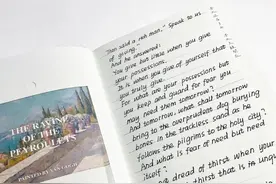 THE RAVINE
OF THE
PEYROULETS
PAINTED BY VAN GOGH
Then said a rich man, "Speak to us
of giving."
And he answered:
You give but little when you give
your possessions.
It is when you give of yourself that
you truly give.
For what are your possessions but
you keep and guard for fear you
may need them tomorrow?
And tomorrow, what shall tomorrow
bring to the overprudent dog burying
bones in the trackless sand as he
follows the pilgrims to the holy city?
And what is fear of need but need
itself?
dread of thirst when your
thirst that is